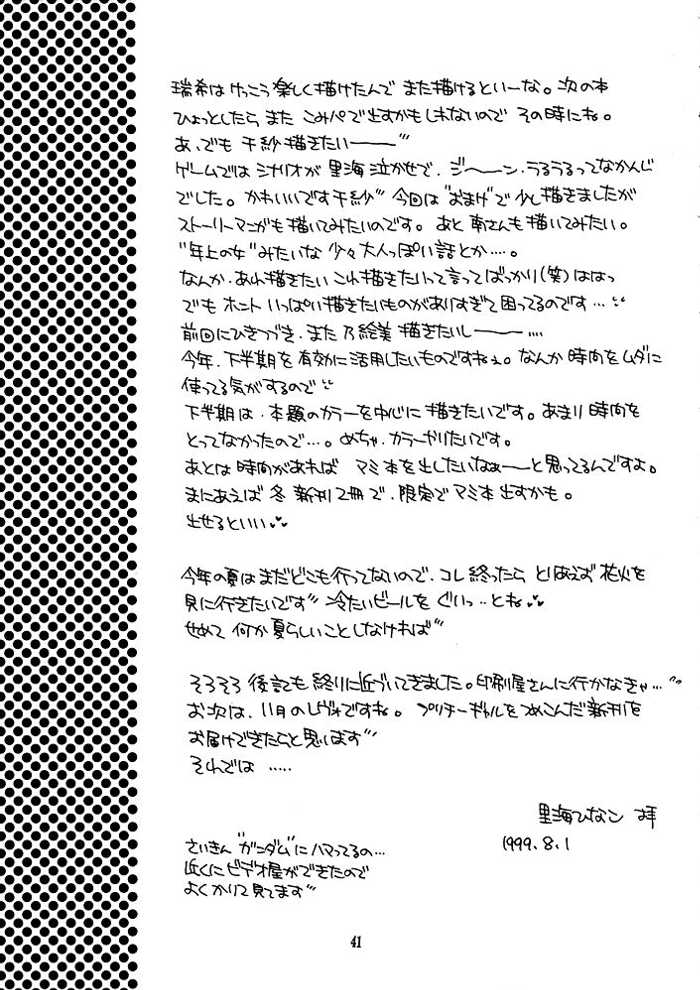 瑞希はけっこう楽しく描けたんで また描けるといーな。次の本
ひょっとしたら また こみパで出すかもしれないので その時にね。
あ、でも 千紗描きたい———〃
ゲームでは シナリオが 里海泣かせで、ジ〜〜ン、うるうるってなかんじ
でした。かわいいです千紗〃 今回は "おまけ"で 少し描きましたが
ストーリーマンガも描いてみたいのです。あと 南さんも描いてみたい。
"年上の女"みたいな 少々大人っぽい話とか‥‥。
なんか、あれ描きたい これ描きたいって言ってばっかり(笑)ははっ
でも ホント いっぱい描きたいものがありすぎて困ってるのです…
前回にひきつづき、また 乃絵美 描きたいし———‥‥
今年、下半期を有効に活用したいものですねぇ。なんか 時間をムダに
使ってる気がするので
下半期は、本題のカラーを中心に 描きたいです。あまり 時間を
とってなかったので…。めちゃ、カラーやりたいです。
あとは 時間があれば マミ本を出したいなぁ——と思ってるんですよ。
まにあえば 冬 新刊2冊で、限定で マミ本 出すかも。
出せるといい♥♥
今年の夏は まだどこも行ってないので、コレ終ったら とりあえず 花火を
見に行きたいです〃 冷たいビールを ぐいっ‥とね♥♥
せめて 何か夏らしいことしなければ〃
そろそろ 後記も終りに近づいてきました。印刷屋さんに行かなきゃ…〃
お次は、11月のレヴォですね。 プリチーギャルを つめこんだ新刊を
お届けできたらと思います〃
それでは ‥‥‥
里海ひなこ 拝
1999.8.1
さいきん "ガンダム"に ハマってるの…
近くに ビデオ屋ができたので
よく かりて 見てます〃
41